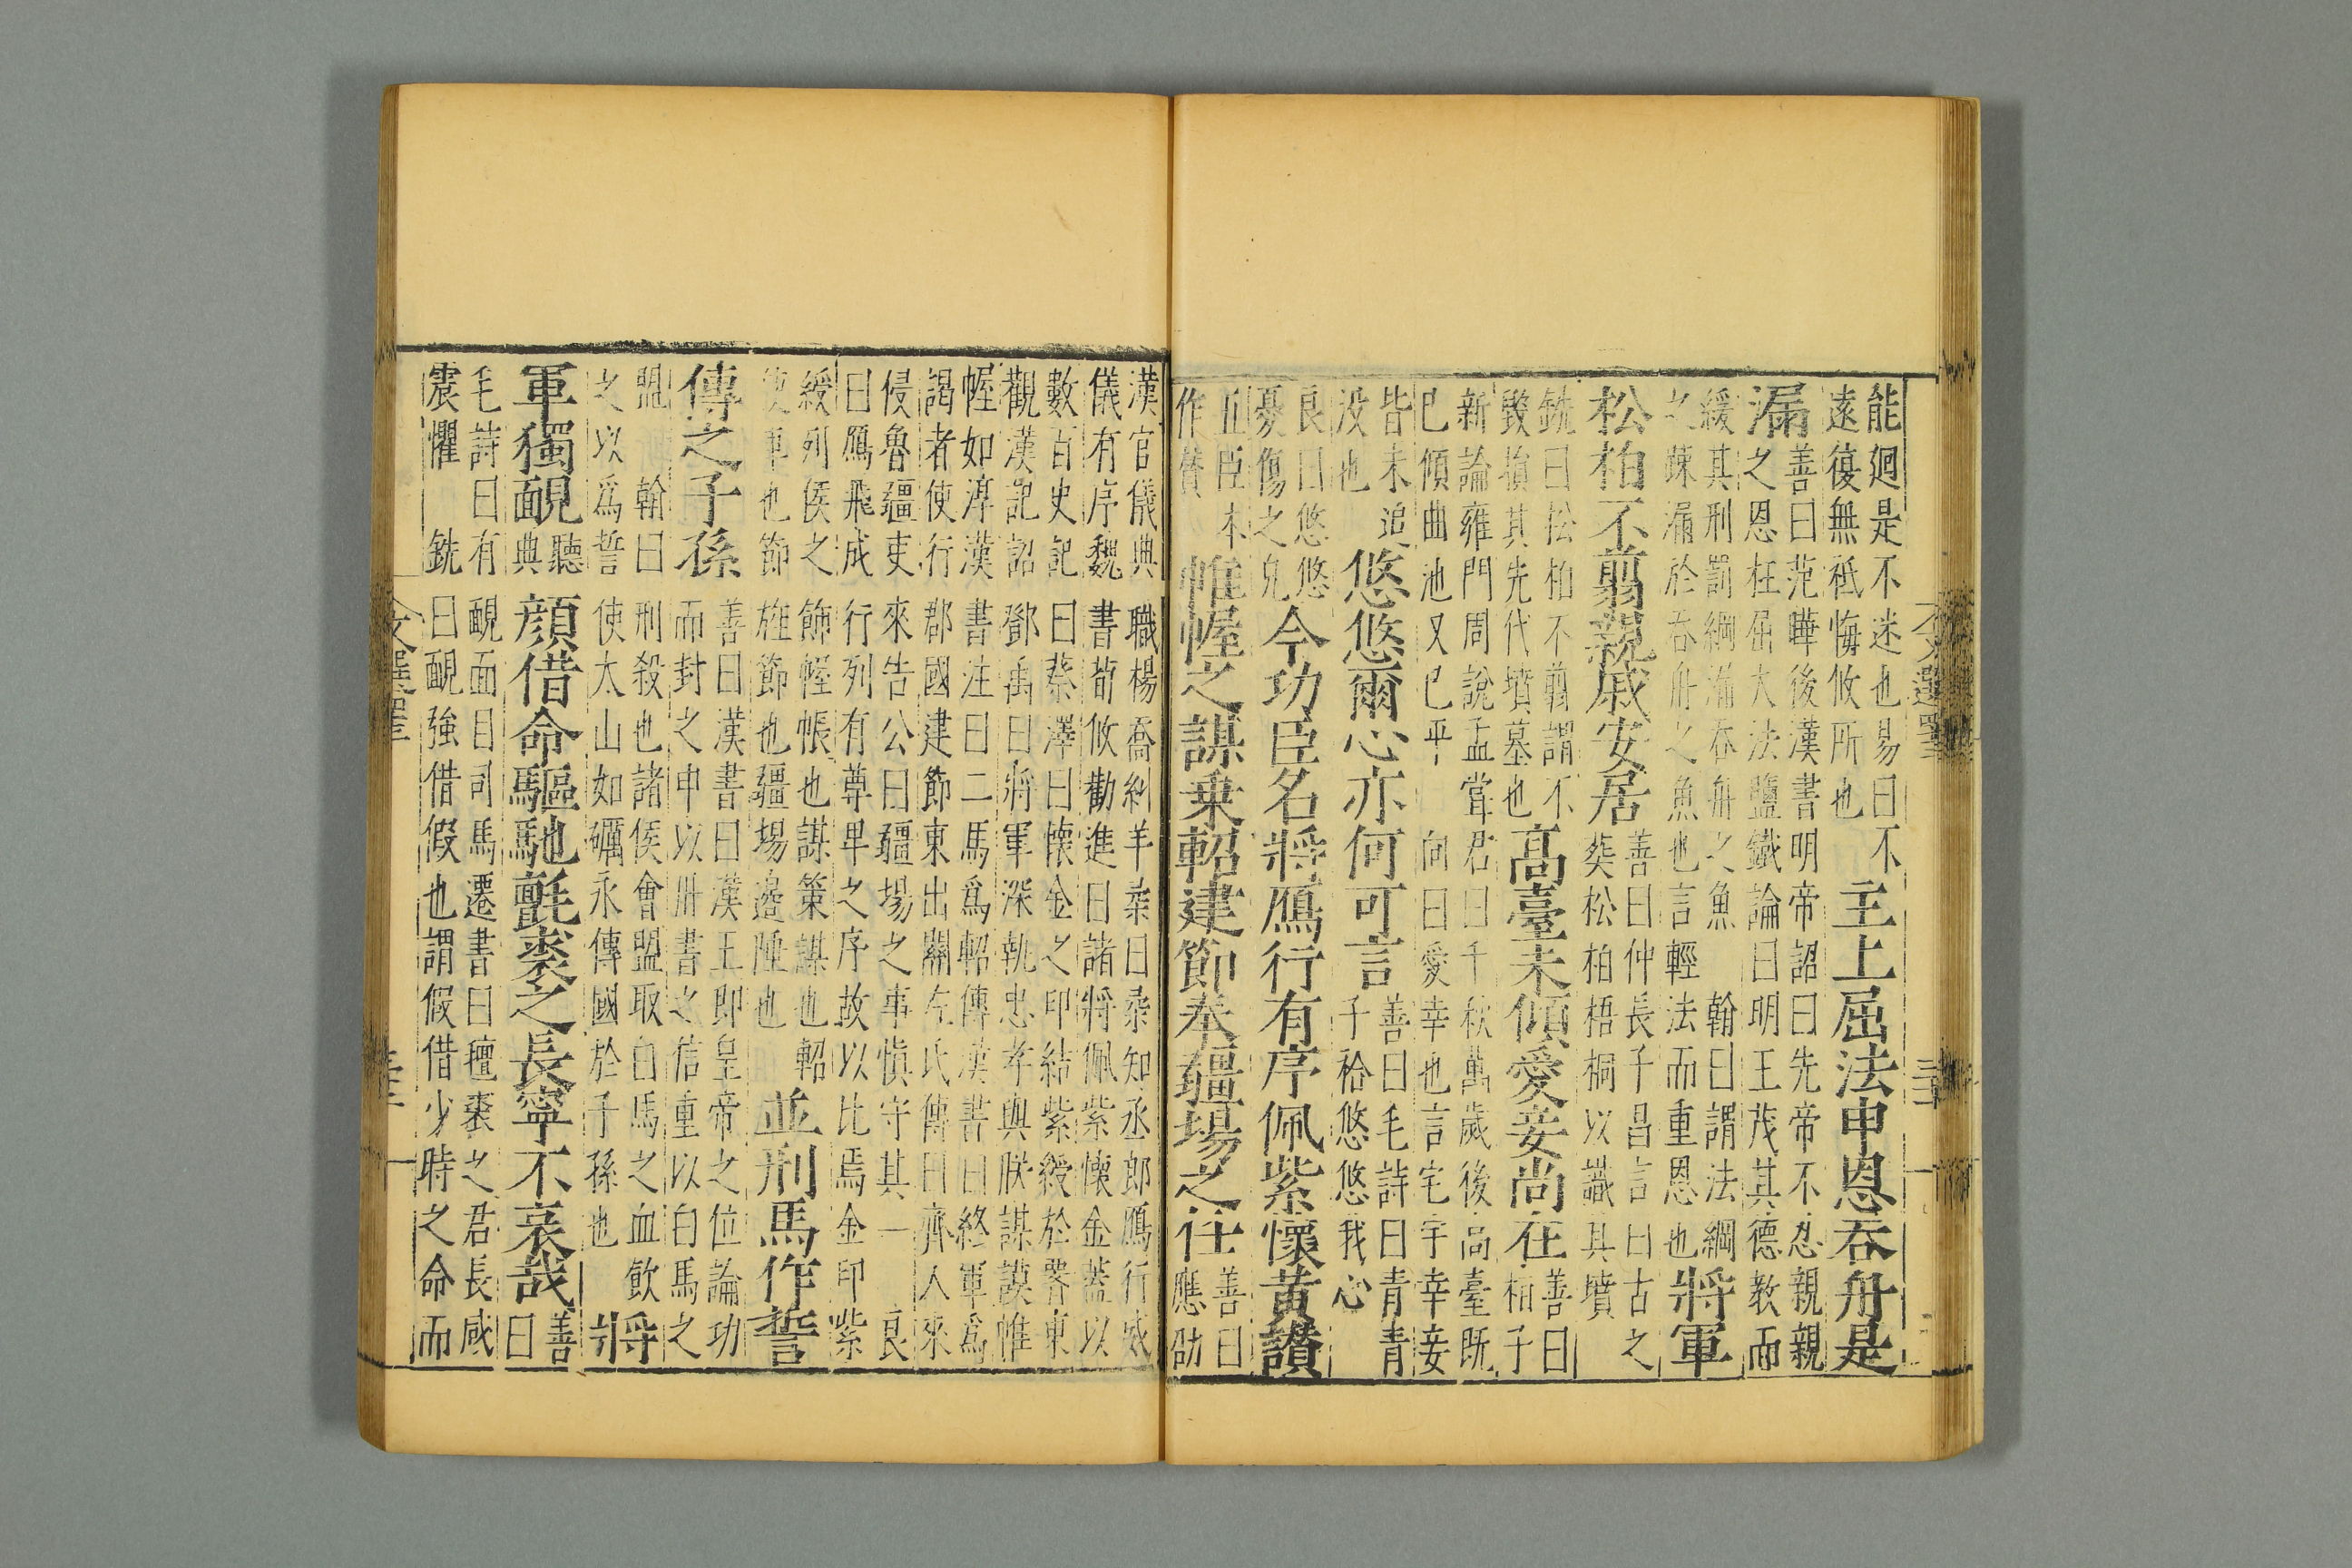 能廻是不迷也易曰不
遠復無祗悔攸所也
主上屈法申恩吞舟是
漏
善曰范曄後漢書明帝詔曰先帝不忍親親
之恩枉屈大法鹽鐵論曰明王茂其德教而
緩其刑罰網漏吞舟之魚 翰曰謂法網
之疎漏於吞舟之魚也言輕法而重恩也
將軍
松柏不翦親戚安居
善曰仲長子昌言曰古之
葬松柏梧桐以識其墳
銑曰松柏不翦謂不
毀損其先代墳墓也
高臺未傾愛妾尚在
善曰桓子
新論雍門周說孟嘗君曰千秋萬歲後高臺既
已傾曲池又已平 向曰愛幸也言宅宇幸妾
皆未追
没也
悠悠爾心亦何可言
善曰毛詩曰青青
子衿悠悠我心
良曰悠悠
憂傷之皃
今功臣名將鴈行有序佩紫懷黃讃
五臣本
作贊
帷幄之謀乗軺建節奉疆埸之任
善曰
應劭
漢官儀典職楊喬糾羊柔曰柔知丞郎鴈行威
儀有序魏書荀攸勸進曰諸將佩紫懷金蓋以
數百史記曰蔡澤曰懷金之印結紫綬於署東
觀漢記詔鄧禹曰將軍深執忠孝與朕謀謨帷
幄如淳漢書注曰二馬爲軺傳漢書曰終軍爲
謁者使行郡國建節東出關左氏傳曰齊人來
侵魯疆吏來告公曰疆埸之事慎守其一 良
曰鴈飛成行列有尊卑之序故以比焉金印紫
綬列侯之飾幄帳也謀策謀也軺
使車也節旌節也疆埸邉陲也
並刑馬作誓
傳之子孫
善曰漢書曰漢王即皇帝之位論功
而封之申以丹書之信重以白馬之
盟 翰曰刑殺也諸侯會盟取白馬之血飲
之以爲誓使太山如礪永傳國於子孫也
將
軍獨靦
聽
典
顔借命驅馳氈裘之長寧不哀哉
善
曰
毛詩曰有靦面目司馬遷書曰氊裘之君長咸
震懼 銑曰靦強借假也謂假借少時之命而